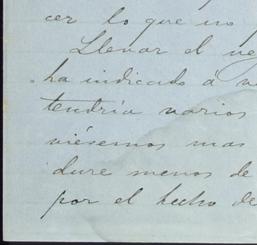 cer lo que no
Llevar el ne
ha indicado á v
tendría varios
viésemos mas
dure menos de
por el hecho de